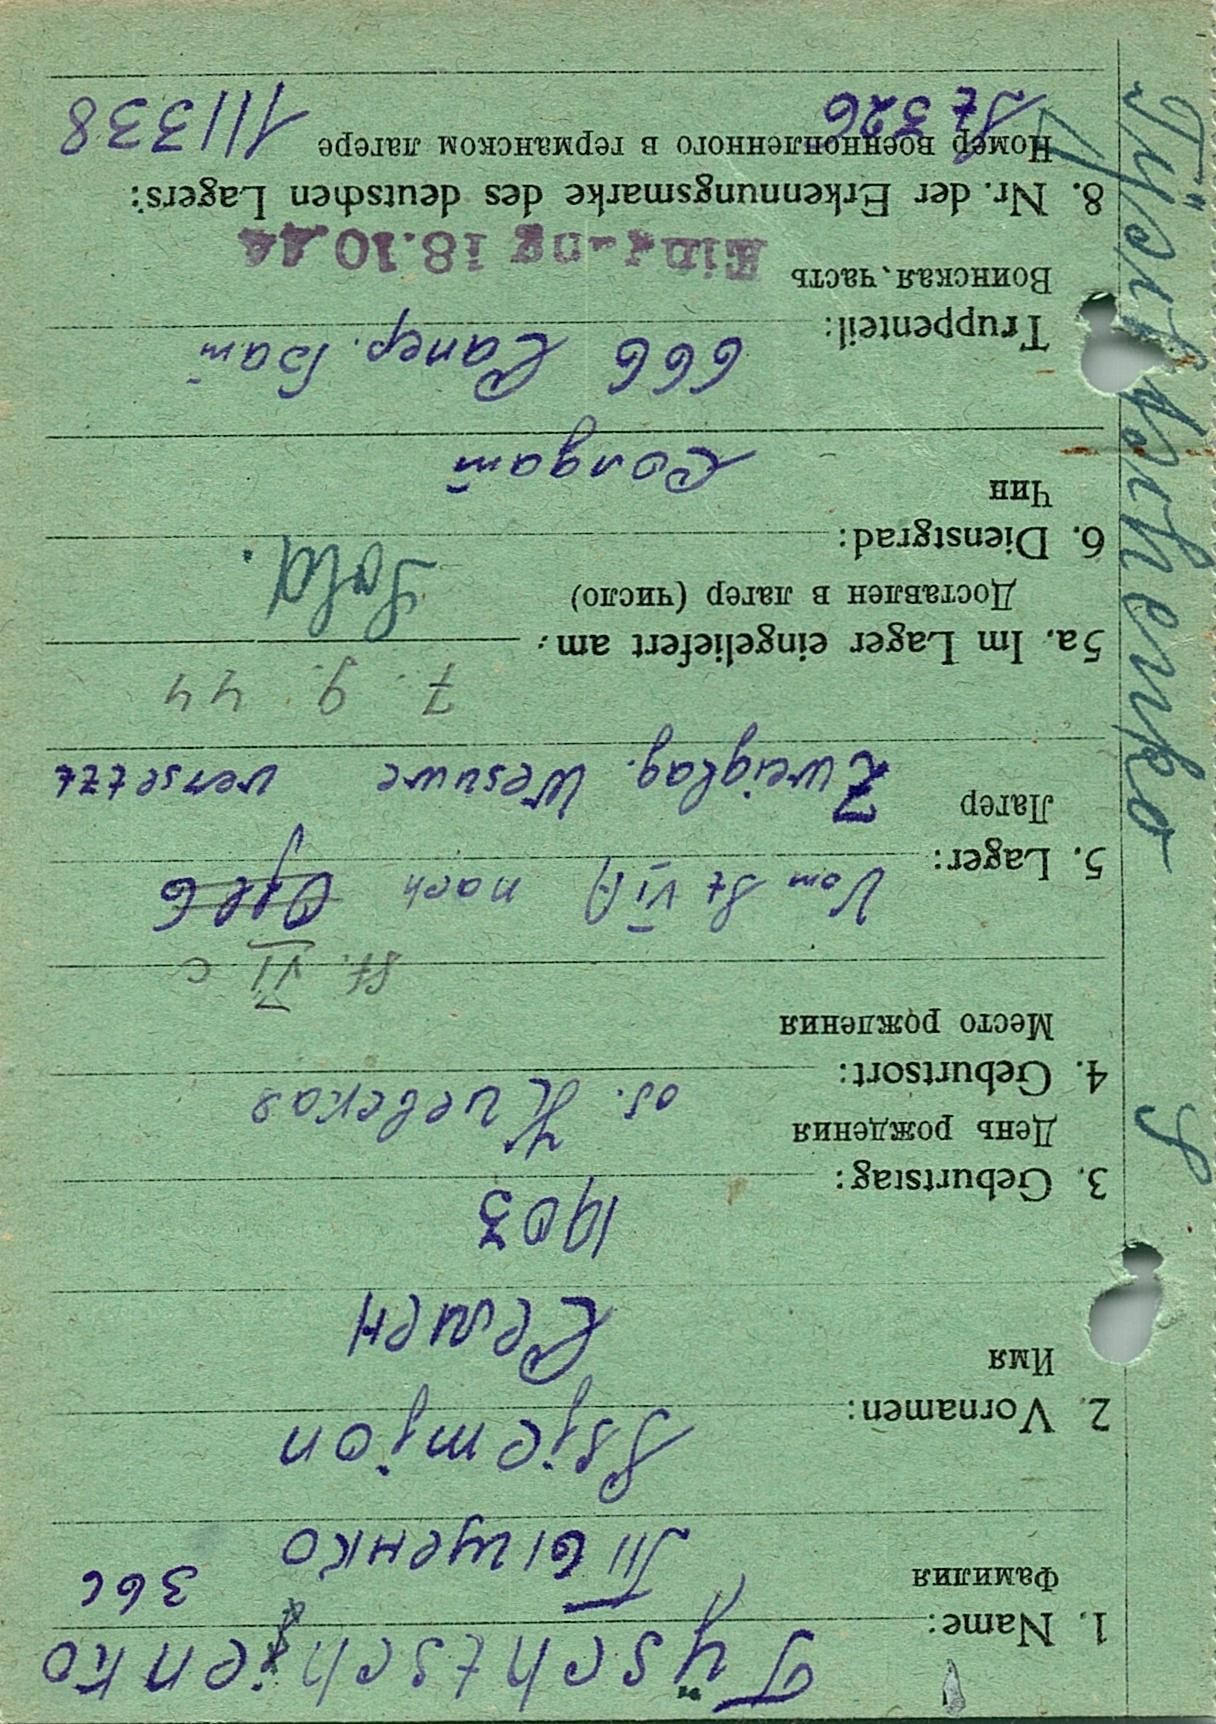 Tÿschtschenko
1. Name:
Фамилия
Тыщенко
366
Ssjemjon
2. Vornamen:
Имя
Семен
1903
3. Geburtstag:
День рождения
4. Geburtsort:
Место рождения
ов. Киевская
St. VI c
Vom St VI A nach
5. Lager:
Лагер
Zweiglag. Wesuwe versetzt
7. 9. 44
5a. Im Lager eingeliefert am:
Доставлен в лагер (число)
Sold.
6. Dienstgrad:
Чин
Солдат
666 Сапер. Бат
Truppenteil:
Воинская часть
Eingang 18.10.44
8. Nr. der Erkennungsmarke des deutschen Lagers:
Номер военнопленного в германском лагере
111338
St 326
Tÿschtschenko S